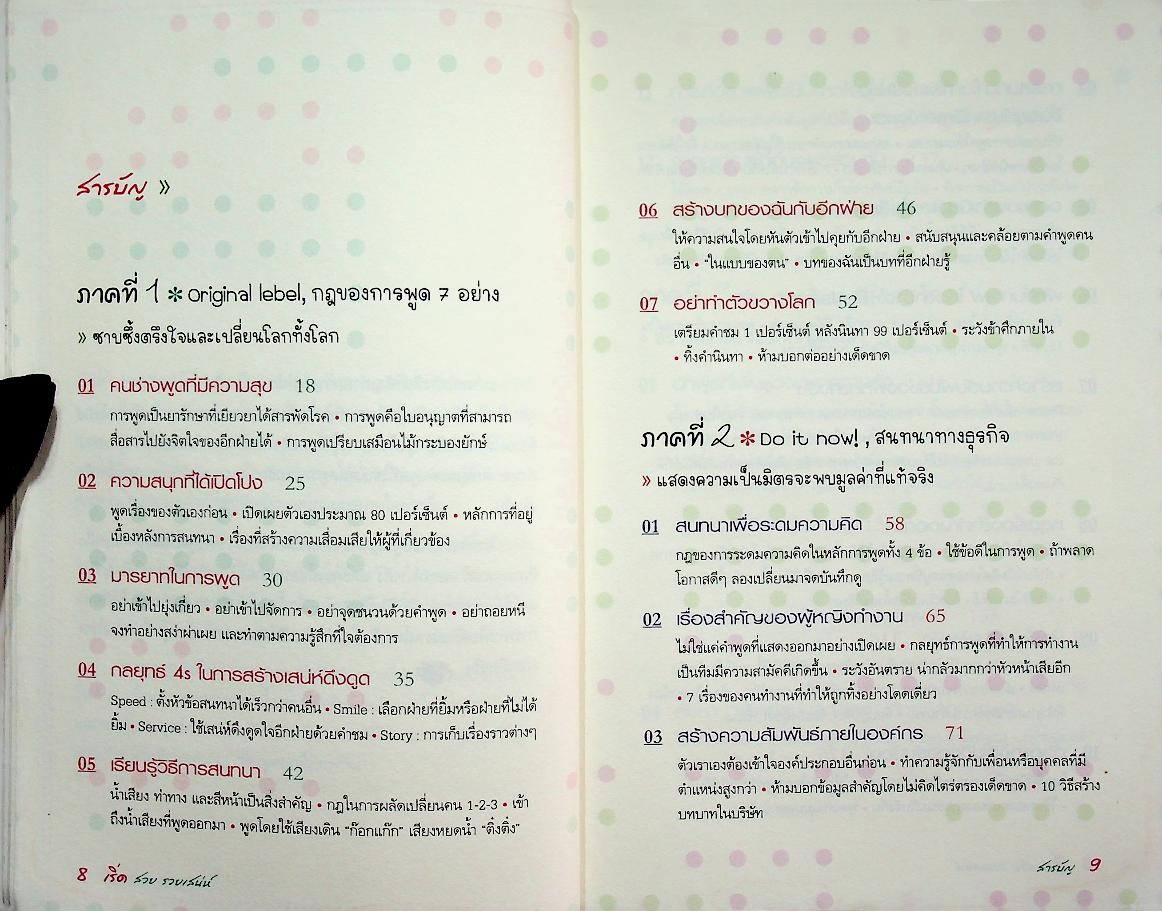 สารบัญ »
ภาคที่ 1 * Original lebel, กฎของการพูด 7 อย่าง
» ซาบซึ้งตรึงใจและเปลี่ยนโลกทั้งโลก
01 คนช่างพูดที่มีความสุข 18
การพูดเป็นยารักษาที่เยียวยาได้สารพัดโรค • การพูดคือใบอนุญาตที่สามารถ
สื่อสารไปยังจิตใจของอีกฝ่ายได้ • การพูดเปรียบเสมือนไม้กระบองยักษ์
02 ความสนุกที่ได้เปิดโปง 25
พูดเรื่องของตัวเองก่อน • เปิดเผยตัวเองประมาณ 80 เปอร์เซ็นต์ • หลักการที่อยู่
เบื้องหลังการสนทนา • เรื่องที่สร้างความเสื่อมเสียให้ผู้ที่เกี่ยวข้อง
03 มารยาทในการพูด 30
อย่าเข้าไปยุ่งเกี่ยว • อย่าเข้าไปจัดการ • อย่าจุดชนวนด้วยคำพูด • อย่าถอยหนี
จงทำอย่างสง่าผ่าเผย และทำตามความรู้สึกที่ใจต้องการ
04 กลยุทธ์ 4s ในการสร้างเสน่ห์ดึงดูด 35
Speed : ตั้งหัวข้อสนทนาได้เร็วกว่าคนอื่น • Smile : เลือกฝ่ายที่ยิ้มหรือฝ่ายที่ไม่ได้
ยิ้ม • Service : ใช้เสน่ห์ดึงดูดใจอีกฝ่ายด้วยคำชม • Story : การเก็บเรื่องราวต่างๆ
05 เรียนรู้วิธีการสนทนา 42
น้ำเสียง ท่าทาง และสีหน้าเป็นสิ่งสำคัญ • กฎในการผลัดเปลี่ยนคน 1-2-3 • เข้า
ถึงน้ำเสียงที่พูดออกมา • พูดโดยใช้เสียงเดิน “ก๊อกแก๊ก” เสียงหยดน้ำ “ติ๋งติ๋ง”
8 เริ่ด สวย รวยเสน่ห์
06 สร้างบทของฉันกับอีกฝ่าย 46
ให้ความสนใจโดยหันตัวเข้าไปคุยกับอีกฝ่าย • สนับสนุนและคล้อยตามคำพูดคน
อื่น • “ในแบบของตน” • บทของฉันเป็นบทที่อีกฝ่ายรู้
07 อย่าทำตัวขวางโลก 52
เตรียมคำชม 1 เปอร์เซ็นต์ หลังนินทา 99 เปอร์เซ็นต์ • ระวังข้าศึกภายใน
• ทิ้งคำนินทา • ห้ามบอกต่ออย่างเด็ดขาด
ภาคที่ 2 * Do it now! , สนทนาทางธุรกิจ
» แสดงความเป็นมิตรจะพบมูลค่าที่แท้จริง
01 สนทนาเพื่อระดมความคิด 58
กฎของการระดมความคิดในหลักการพูดทั้ง 4 ข้อ • ใช้ข้อดีในการพูด • ถ้าพลาด
โอกาสดีๆ ลองเปลี่ยนมาจดบันทึกดู
02 เรื่องสำคัญของผู้หญิงทำงาน 65
ไม่ใช่แค่คำพูดที่แสดงออกมาอย่างเปิดเผย • กลยุทธ์การพูดที่ทำให้การทำงาน
เป็นทีมมีความสามัคคีเกิดขึ้น • ระวังอันตราย น่ากลัวมากกว่าหัวหน้าเสียอีก
• 7 เรื่องของคนทำงานที่ทำให้ถูกทิ้งอย่างโดดเดี่ยว
03 สร้างความสัมพันธ์ภายในองค์กร 71
ตัวเราเองต้องเข้าใจองค์ประกอบอื่นก่อน • ทำความรู้จักกับเพื่อนหรือบุคคลที่มี
ตำแหน่งสูงกว่า • ห้ามบอกข้อมูลสำคัญโดยไม่คิดไตร่ตรองเด็ดขาด • 10 วิธีสร้าง
บทบาทในบริษัท
สารบัญ 9